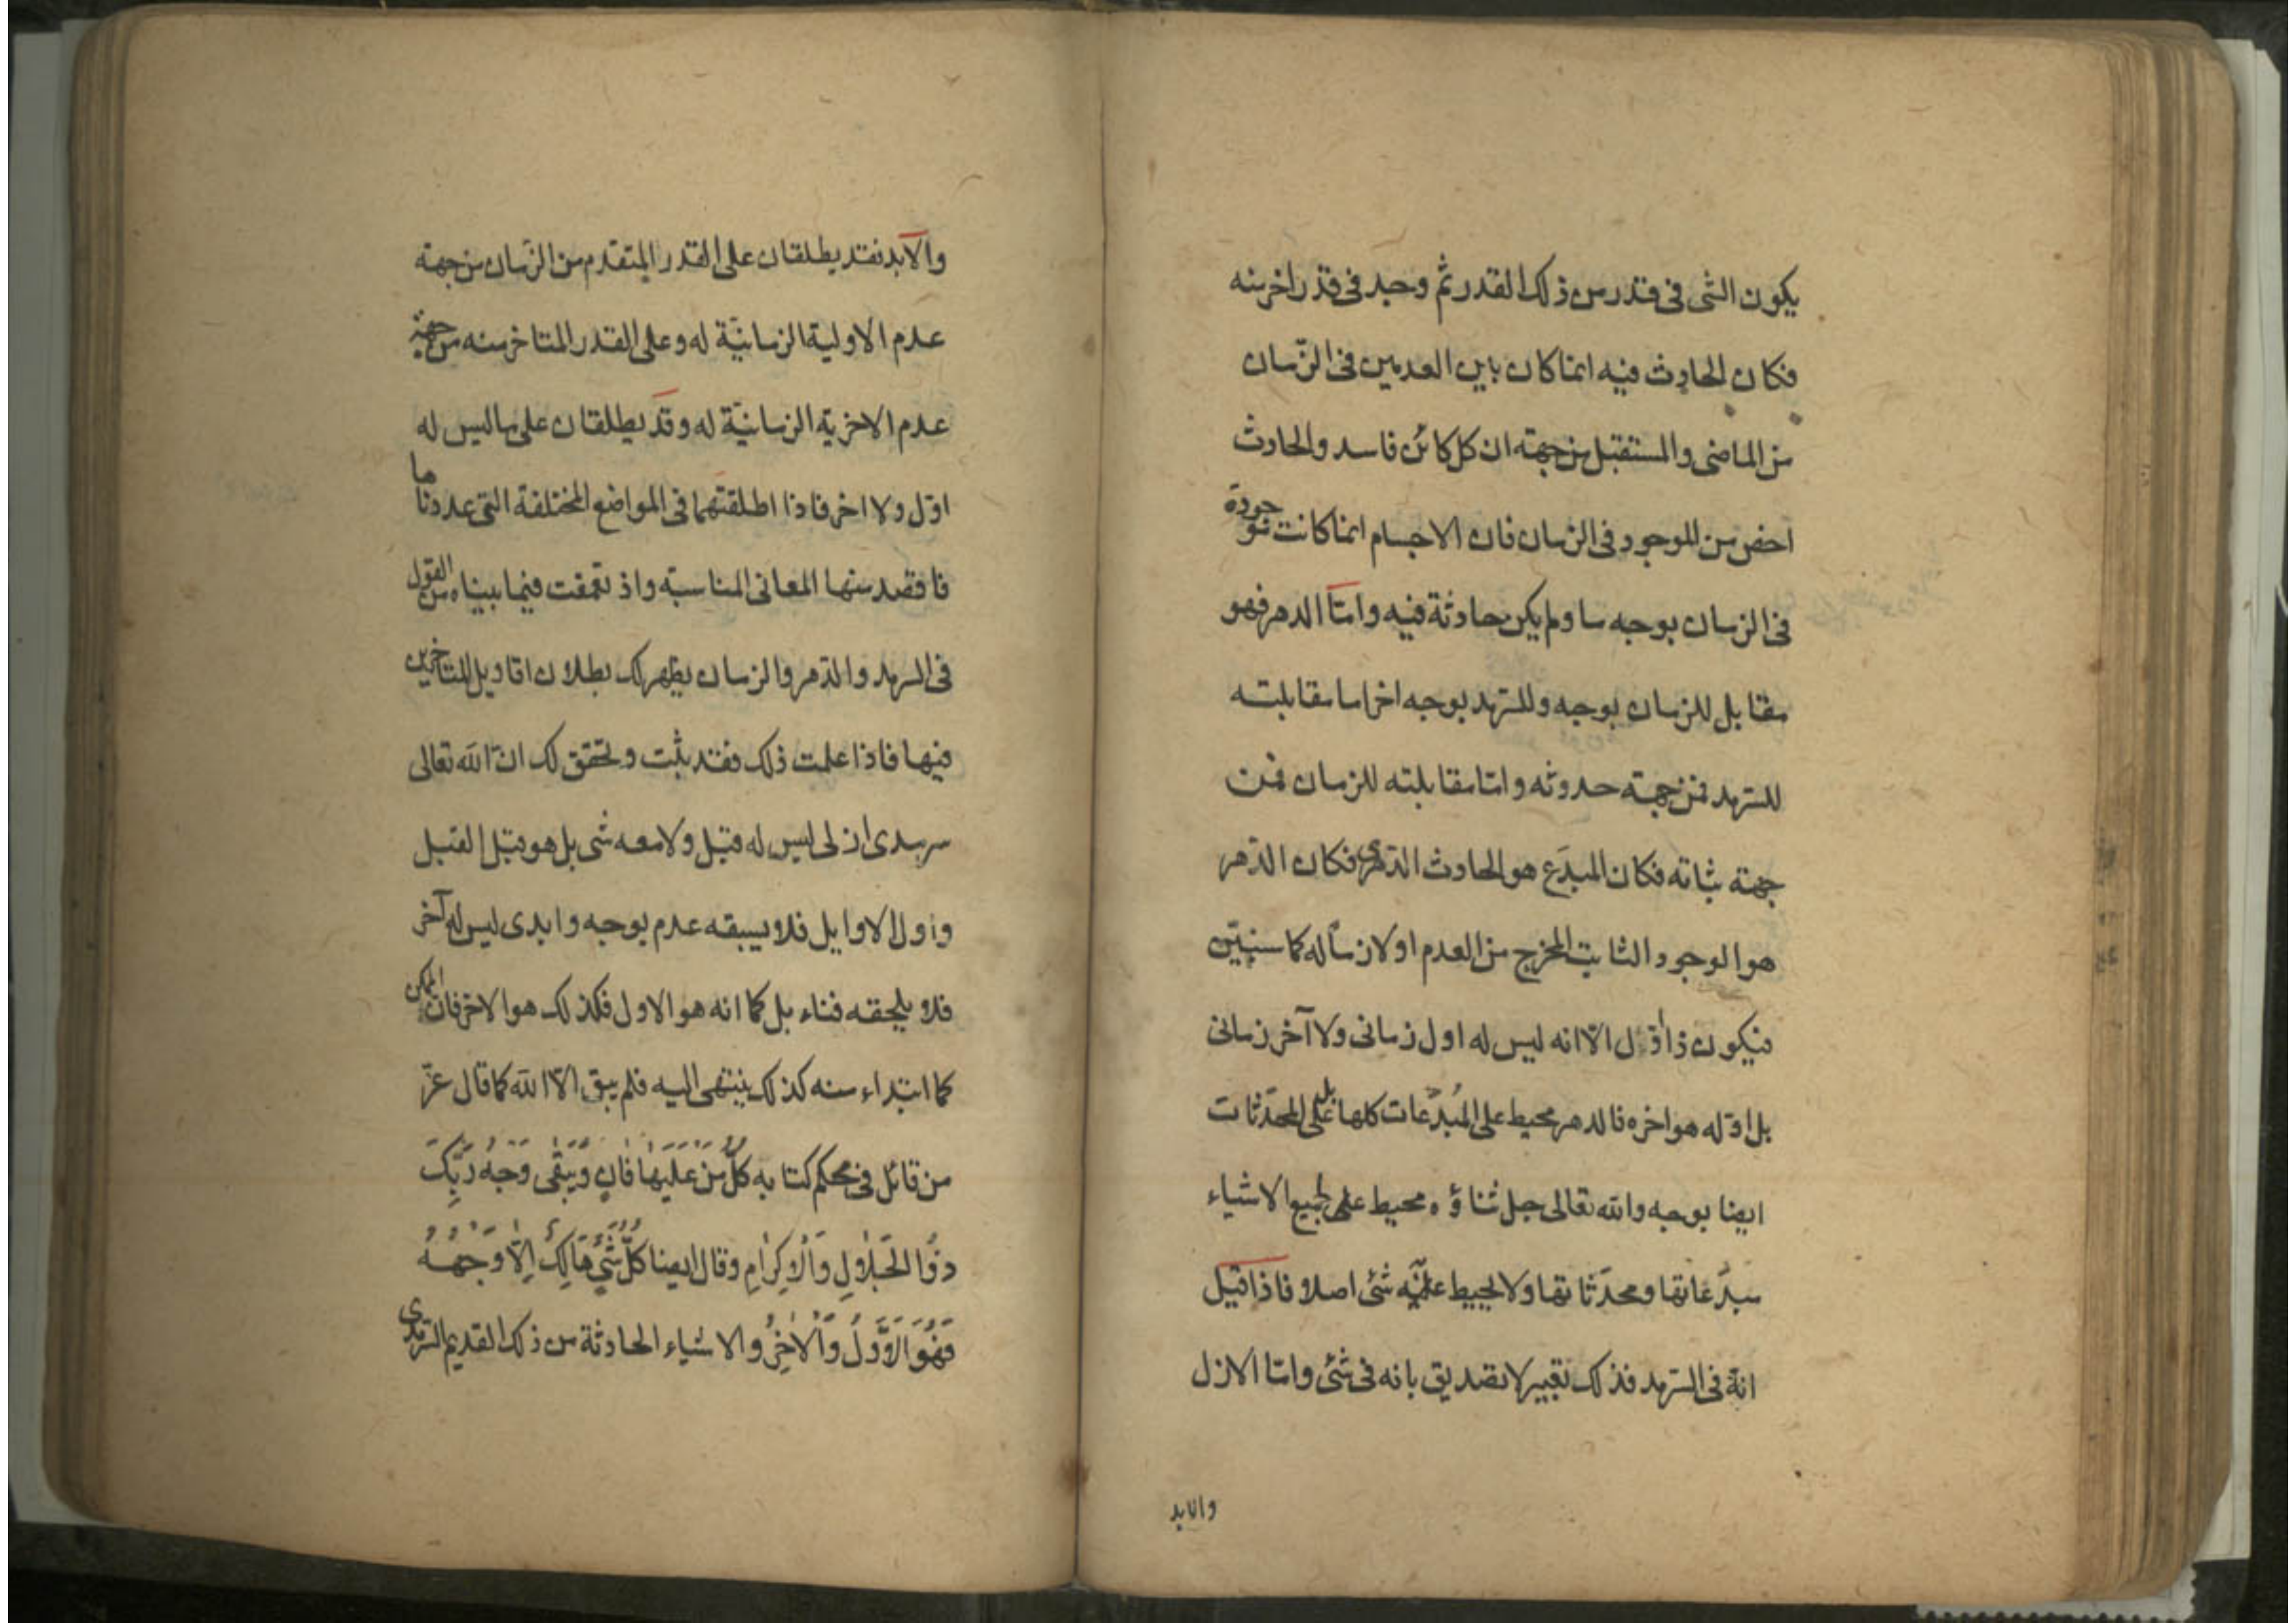 يكون الشى فى قدر من ذلك القدر ثم وجد فى قدر اخر منه
فكان الحادث فيه انما كان بين العدمين فى الزّمان
من الماضى والمستقبل من جهة ان كل كائن فاسد والحادث
اخص من الموجود فى الزمان فان الاجسام انما كانت موجودة
فى الزمان بوجه ما ولم يكن حادثة فيه وامّا الدهر فهو
مقابل للزمان بوجه وللسّرمد بوجه اخر اما مقابلته
للسّرمد فمن جهة حدوثه وامّا مقابلته للزمان فمن
جهة ثباته فكان المبدَع هو الحادث الدّهرى فكان الدّهر
هو الوجود الثابت المخرج من العدم اولا زماً له كما سنبيّن
فيكون ذا اوّل الّا انه ليس له اول زمانى ولا آخر زمانى
بل اوّله هو اخره فالدهر محيط على المُبدَعات كلها بل على المحدَثات
ايضا بوجه والله تعالى جل ثناؤه محيط على جميع الاشياء
مبدَعاتها ومحدَثاتها ولا يحيط عليه شئ اصلا فاذا قيل
انه فى السّرمد فذلك تعبير لا تصديق بانه فى شئ وامّا الازل
والابد
والابد فقد يطلقان على القدر المتقدم من الزّمان من جهة
عدم الاولية الزمانيّة له وعلى القدر المتاخر منه من جهة
عدم الاخرية الزمانيّة له وقد يطلقان على ما ليس له
اوّل ولا اخر فاذا اطلقتهما فى المواضع المختلفة التى عددناها
فاقصد منها المعانى المناسبة واذ تعمقت فيما بيناه من القول
فى السرمد والدّهر والزمان يظهر لك بطلان اقاويل المتاخرين
فيها فاذا علمت ذلك فقد ثبت وتحقق لك انّ الله تعالى
سرمدى ازلى ليس له قبل ولا معه شى بل هو قبل القبل
واول الاوايل فلا يسبقه عدم بوجه وابدى ليس له آخر
فلا يلحقه فناء بل كما انه هو الاول فكذلك هو الاخر فان الممكن
كما ابتداء منه كذلك ينتهى اليه فلم يبق الّا الله كما قال عزّ
من قائل فى محكم كتابه كُلُّ مَنْ عَلَيْهَا فَانٍ وَيَبْقَى وَجْهُ رَبِّكَ
ذُو الْجَلَالِ وَالْاِكْرَامِ وقال ايضا كُلُّ شَئٍ هَالِكٌ اِلَّا وَجْهُهُ
فَهُوَ الْاَوَّلُ وَالْاٰخِرُ والاشياء الحادثة من ذلك القديم السّرمدى